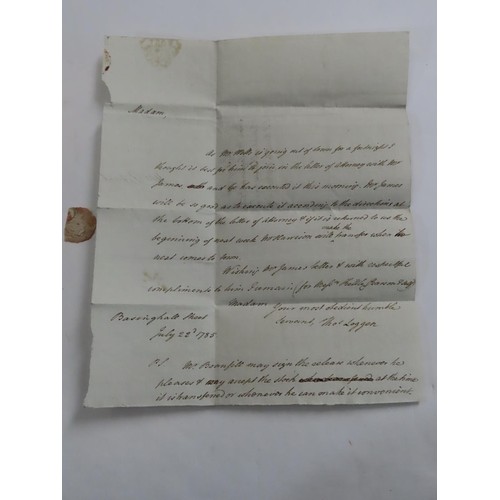 Madam,
As Mr Webb is going out of town for a fortnight I
thought it best for him to join in the letter of attorney with Mr
James and he has executed it this morning. Mr James
will be so good as to execute it according to the directions at
the bottom of the letter of attorney & if it is returned to us the
make the
beginning of next week Mr Harrison will transfer when he
next comes to town.
Wishing Mr James better & with respectful
compliments to him I remain, for
Madam Your most obedient humble
Basinghall Street servant, Thos Loggen
July 22d 1785
P.S. Mr Beaufill may sign the release whenever he
pleases & may accept the stock at the time
it is transferred or whenever he can make it convenient.